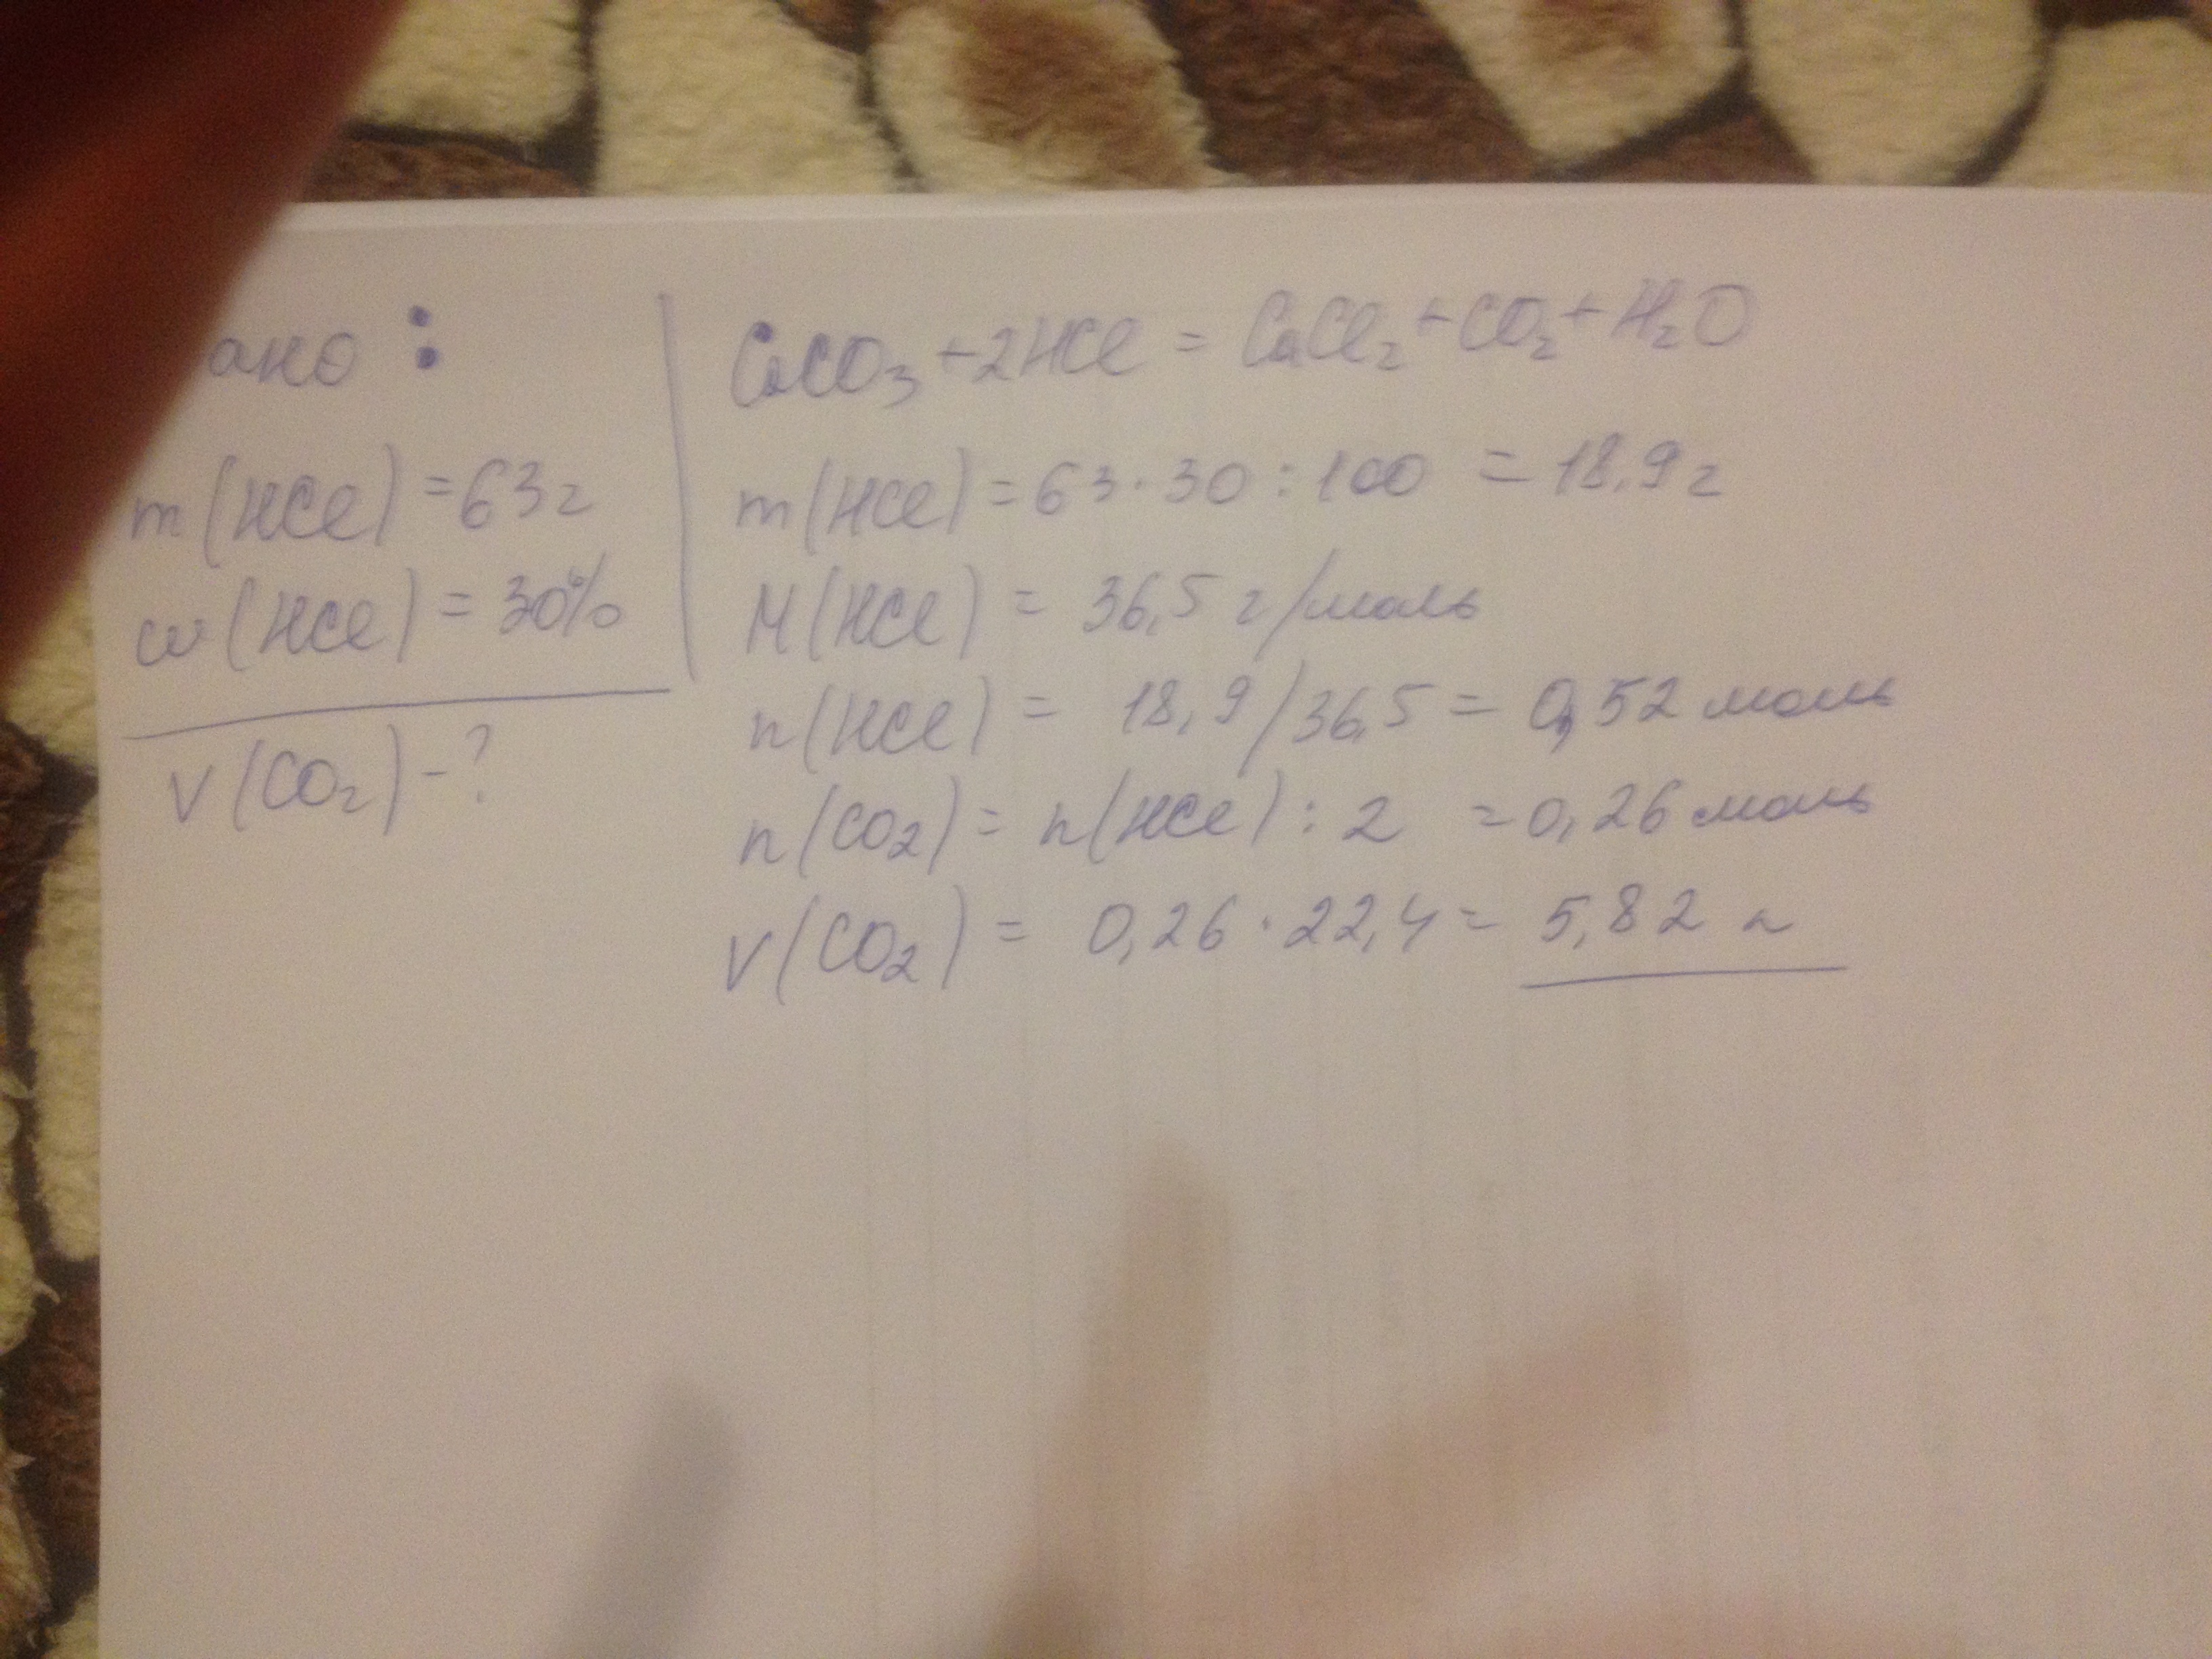 ано :
m(HCl) = 63 г
w(HCl) = 30%
V(CO₂) - ?
CaCO₃ + 2HCl = CaCl₂ + CO₂ + H₂O
m(HCl) = 63 · 30 : 100 = 18,9 г
M(HCl) = 36,5 г/моль
n(HCl) = 18,9/36,5 = 0,52 моль
n(CO₂) = n(HCl) : 2 = 0,26 моль
V(CO₂) = 0,26 · 22,4 = 5,82 л